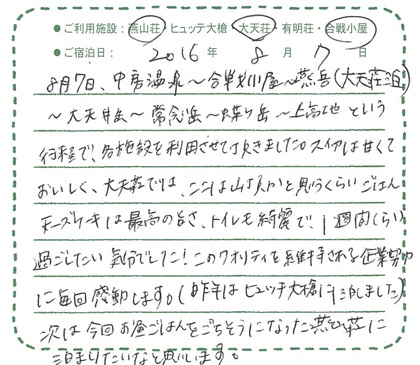 ●ご利用施設：燕山荘・ヒュッテ大槍・大天荘・有明荘・合戦小屋
●ご宿泊日： 2016 年 8 月 7 日
8月7日、中房温泉～合戦小屋～燕岳(大天荘泊)
～大天井岳～常念岳～蝶ヶ岳～上高地という
行程で、各施設を利用させて頂きました。スイカは甘くて
おいしく、大天荘では、ここは山頂かと思うくらいごはん
チーズケーキは最高の旨さ、トイレも綺麗で、1週間くらい
過ごしたい気分でした！このクオリティを維持される企業努力
に毎回感動します。(昨年はヒュッテ大槍に1泊しました)
次は今回お昼ごはんをごちそうになった燕山荘に
泊まりたいなと思います。